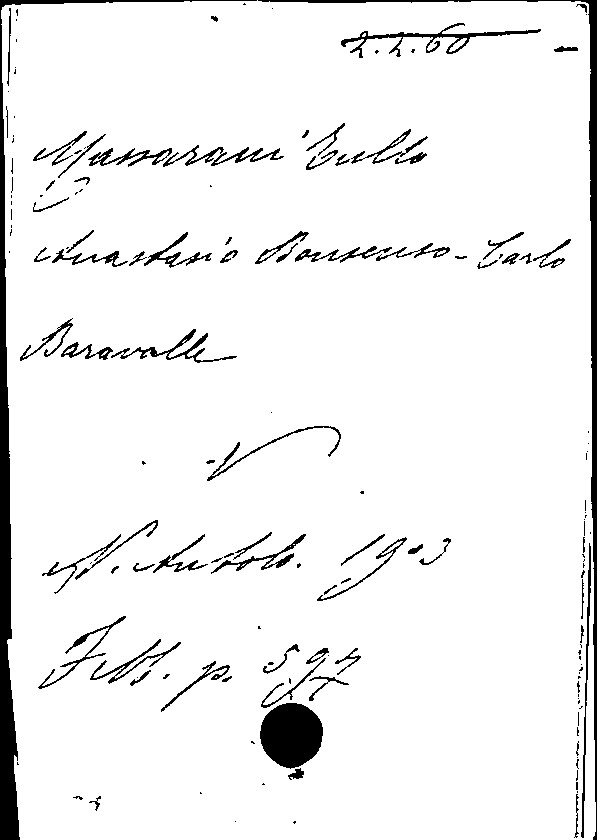 2.2.60
Massarani Tullo
Anastasio Bonsenso - Carlo
Baravalle
N. Antolo. 1903
Febb. p. 597